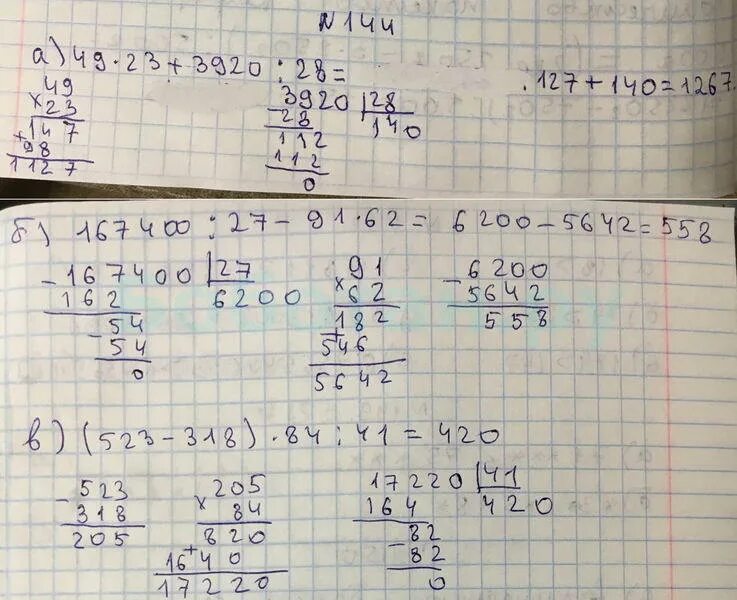 N144
а) 49·23+3920:28= .127+140=1267.
49
×23
147
+98
1127
3920 |28
-28 140
112
112
0
б) 167400:27-91·62= 6200-5642=558
-167400 |27
162 6200
54
-54
0
91
×62
182
+546
5642
-6200
5642
558
в) (523-318)·84:41=420
-523
318
205
205
×84
820
+1640
17220
17220 |41
164 420
82
-82
0